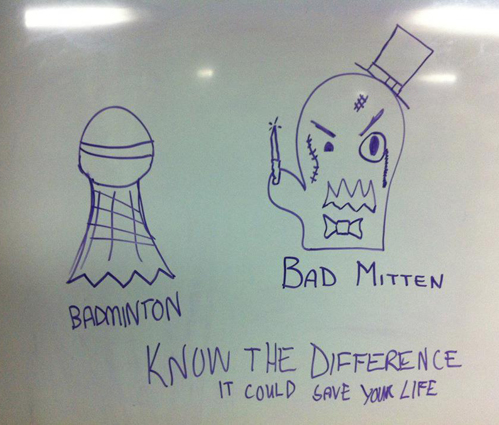 BADMINTON
BAD MITTEN
KNOW THE DIFFERENCE
IT COULD SAVE YOUR LIFE